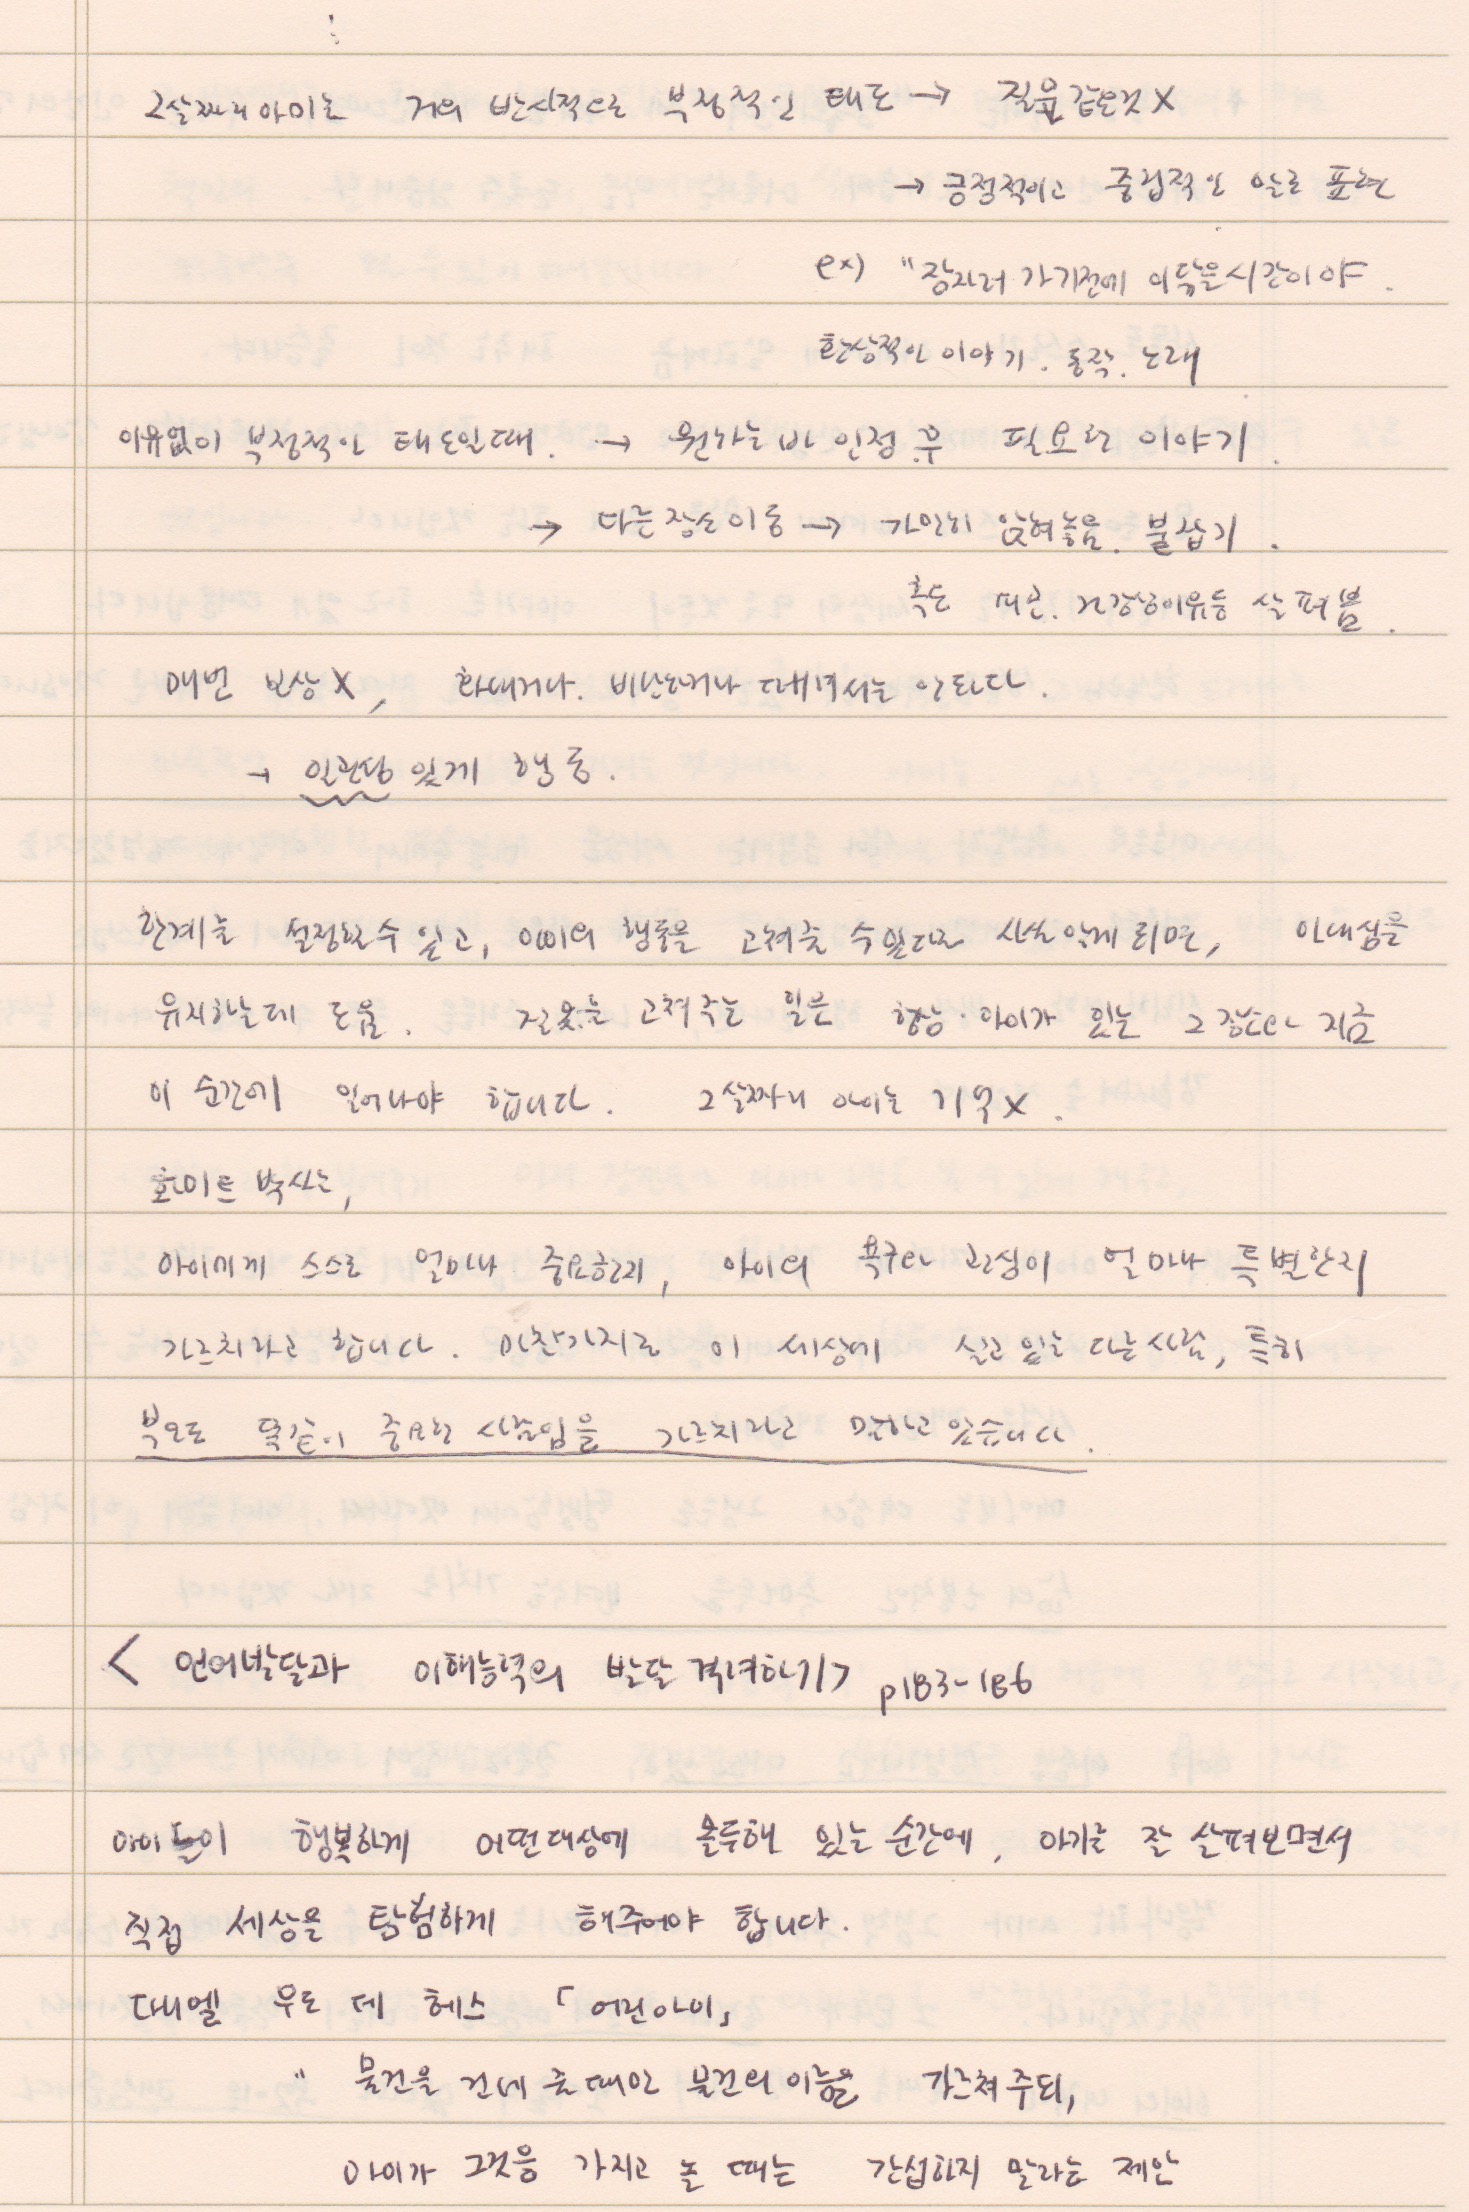 2살짜리 아이는 거의 반사적으로 부정적인 태도 → 질문같은것 X
→ 긍정적이고 중립적인 말로 표현
ex) "잠자러 가기전에 이 닦을 시간이야.
환상적인 이야기. 동작. 노래
이유없이 부정적인 태도일때. → 원하는바 인정 후 필요한 이야기.
→ 다른장소이동 → 가만히 앉혀놓음. 붙잡기.
혹은 피곤. 건강상이유등 살펴봄.
매번 보상 X, 화내거나. 비난하거나 때려서는 안된다.
→ 일관성 있게 행동.
한계를 설정할 수 있고, 아이의 행동을 고쳐줄 수 있다는 사실 알게 되면, 인내심을
유지하는데 도움. 잘못을 고쳐주는 일은 항상 아이가 있는 그 장소와 지금
이 순간에 일어나야 합니다. 2살짜리 아이는 기억 X.
화이트 박사는,
아이에게 스스로 얼마나 중요한지, 아이의 욕구와 관심이 얼마나 특별한지
가르치라고 합니다. 마찬가지로 이 세상에 살고 있는 다른사람, 특히
부모도 똑같이 중요한 사람임을 가르치라고 말하고 있습니다.
< 언어발달과 이해능력의 발달 격려하기> p183-186
아이들이 행복하게 어떤대상에 몰두해 있는 순간에, 아기를 잘 살펴보면서
직접 세상을 탐험하게 해주어야 합니다.
다니엘 우도 데 헤스 「어린아이」
" 물건을 건네 줄때만 물건의 이름을 가르쳐 주되,
아이가 그것을 가지고 놀 때는 간섭하지 말라는 제안